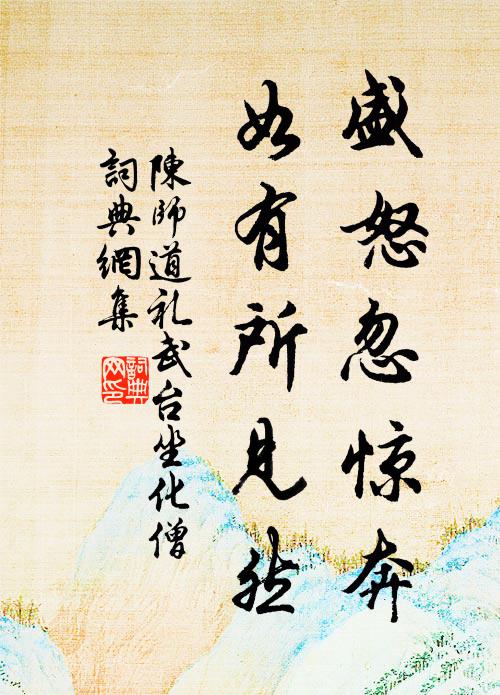 盛怒忽惊奔
如有所見然
陳師道礼武台坐化僧
詞典網集
詞典网印